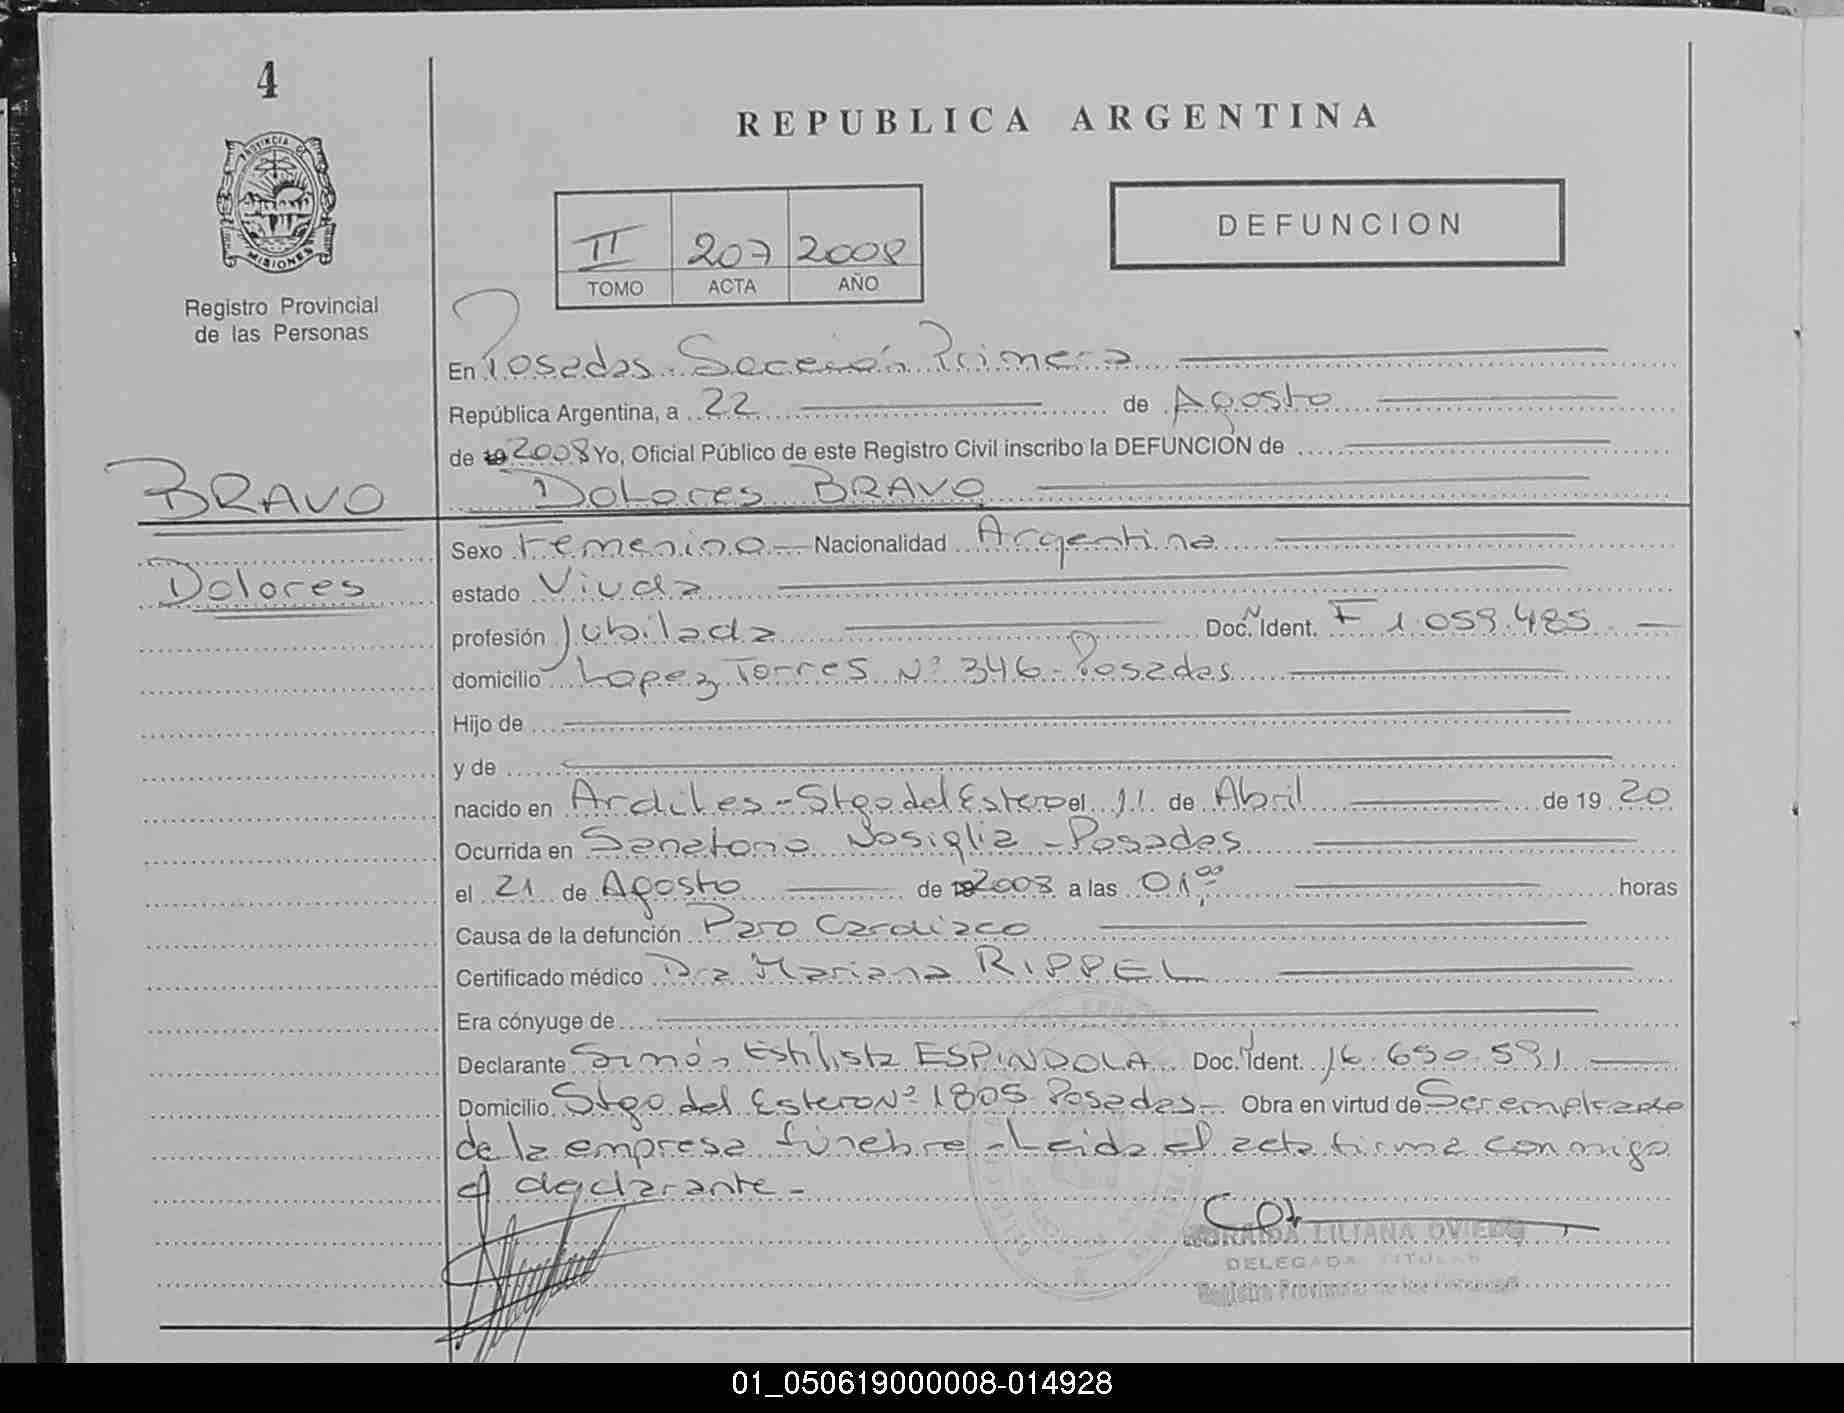 4
REPUBLICA ARGENTINA
PROVINCIA DE
MISIONES
Registro Provincial
de las Personas
II 207 2008
TOMO ACTA AÑO
DEFUNCION
En Posadas Sección Primera
República Argentina, a 22 de Agosto
de 19 2008 Yo, Oficial Público de este Registro Civil inscribo la DEFUNCION de
BRAVO
Dolores BRAVO
Sexo Femenino Nacionalidad Argentina
Dolores
estado Viuda
profesión Jubilada Doc. N Ident. F 1.059.485
domicilio Lopez Torres Nº 346-Posadas
Hijo de
y de
nacido en Ardites-Stgo del Estero el 11 de Abril de 19 20
Ocurrida en Sanatorio Nosiglia-Posadas
el 21 de Agosto de 19 2008 a las 01:00 horas
Causa de la defunción Paro Cardiaco
Certificado médico Dra Mariana RIPPEL
Era cónyuge de
Declarante Simón Estilista ESPINDOLA Doc. N Ident. 16.690.591
Domicilio Stgo del Estero Nº 1805 Posadas- Obra en virtud de Ser empleado
de la empresa fúnebre-Leida el acta firma conmigo
el declarante-
LILIANA OVIEDO
DELEGADA TITULAR
Registro Provincial de las Personas
01_050619000008-014928